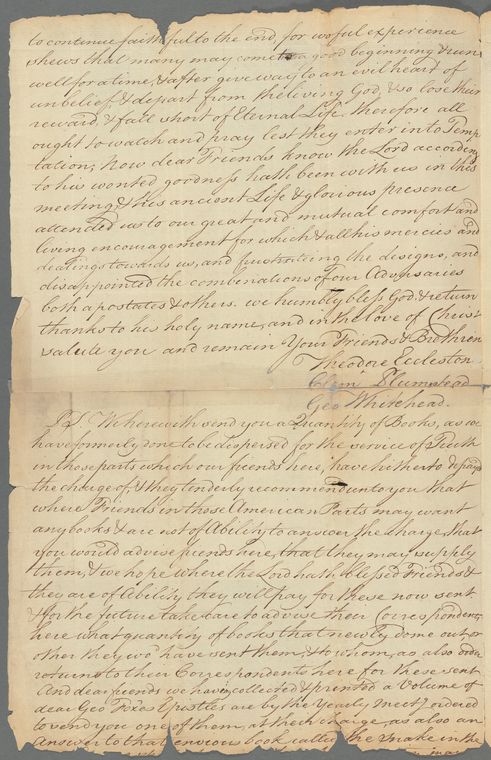 to continue faithful to the end, for woful experience
shews that many may come to a good beginning & run
well for a time, & after give way to an evil heart of
unbelief, & depart from the living God, & so lose their
reward, & fall short of Eternal Life. therefore all
ought to watch and pray lest they enter into Temp
tation; now dear Friends know the Lord according
to his wonted goodness hath been with us in this
meeting, & his ancient Life & glorious presence
attended us to our great and mutual comfort and
living encouragement for which & all his mercies and
dealings towards us, and frustrating the designs, and
disappointed the combinations of our Adversaries
both apostates & others. we humbly bless God. & return
thanks to his holy name, and in the love of Christ
salute you and remain Your Friends & Brethren
Theodore Eccleston
Clem Plumstead
Geo Whitehead.
P.S. We herewith send you a Quantity of Books, as we
have formerly done to be dispersed for the service of Truth
in those parts which our friends here, have hitherto
the charge of, & they tenderly recommend unto you that
where Friends in those American Parts may want
any books & are not of Ability to answer the charge, that
you would advise friends here, that they may supply
them, & we hope where the Lord hath blessed Friends &
they are of Ability they will pay for these now sent
& for the future take care to advise their Correspondents
here what quantity of books that newly come out, or
other they wod have sent them, & to whom, as also
returns to their Correspondents here for these sent
And dear friends we having collected & printed a Volume of
dear Geo Foxs Epistles are by the Yearly Meetg ordered
to send you one of them, at their charge, as also an
Answer to that envious book called the Snake in the